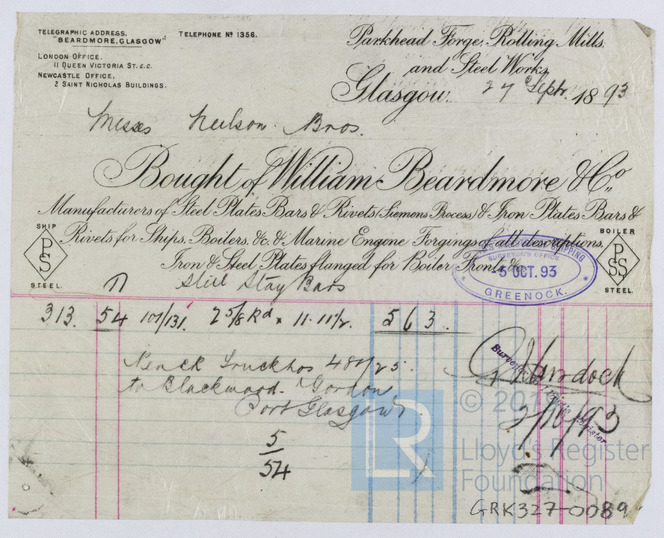 TELEGRAPHIC ADDRESS.
"BEARDMORE, GLASGOW"
TELEPHONE Nº 1356.
LONDON OFFICE.
11 QUEEN VICTORIA ST. E.C.
NEWCASTLE OFFICE,
2 SAINT NICHOLAS BUILDINGS.
Parkhead Forge, Rolling Mills,
and Steel Works,
Glasgow. 27 Septr. 1893
Messrs Neilson Bros.
Bought of William Beardmore & Co.,
Manufacturers of Steel Plates Bars & Rivets (Siemens Process) & Iron Plates Bars &
Rivets for Ships, Boilers, &c. & Marine Engine Forgings of all descriptions.
Iron & Steel Plates flanged for Boiler Fronts &c.
SHIP
PS
STEEL.
BOILER
PSS
STEEL
SURVEYOR'S OFFICE
5 OCT. 93
GREENOCK.
Steel Stay Bars
313. 54 107/131. 2 5/8 Rd x 11.11 1/2. 563.
to Blackwood & Gordon
Port Glasgow
5
54
Murdock
2/10/93
© 201
LR
Lloyd's Register
Foundation
GRK327-0089